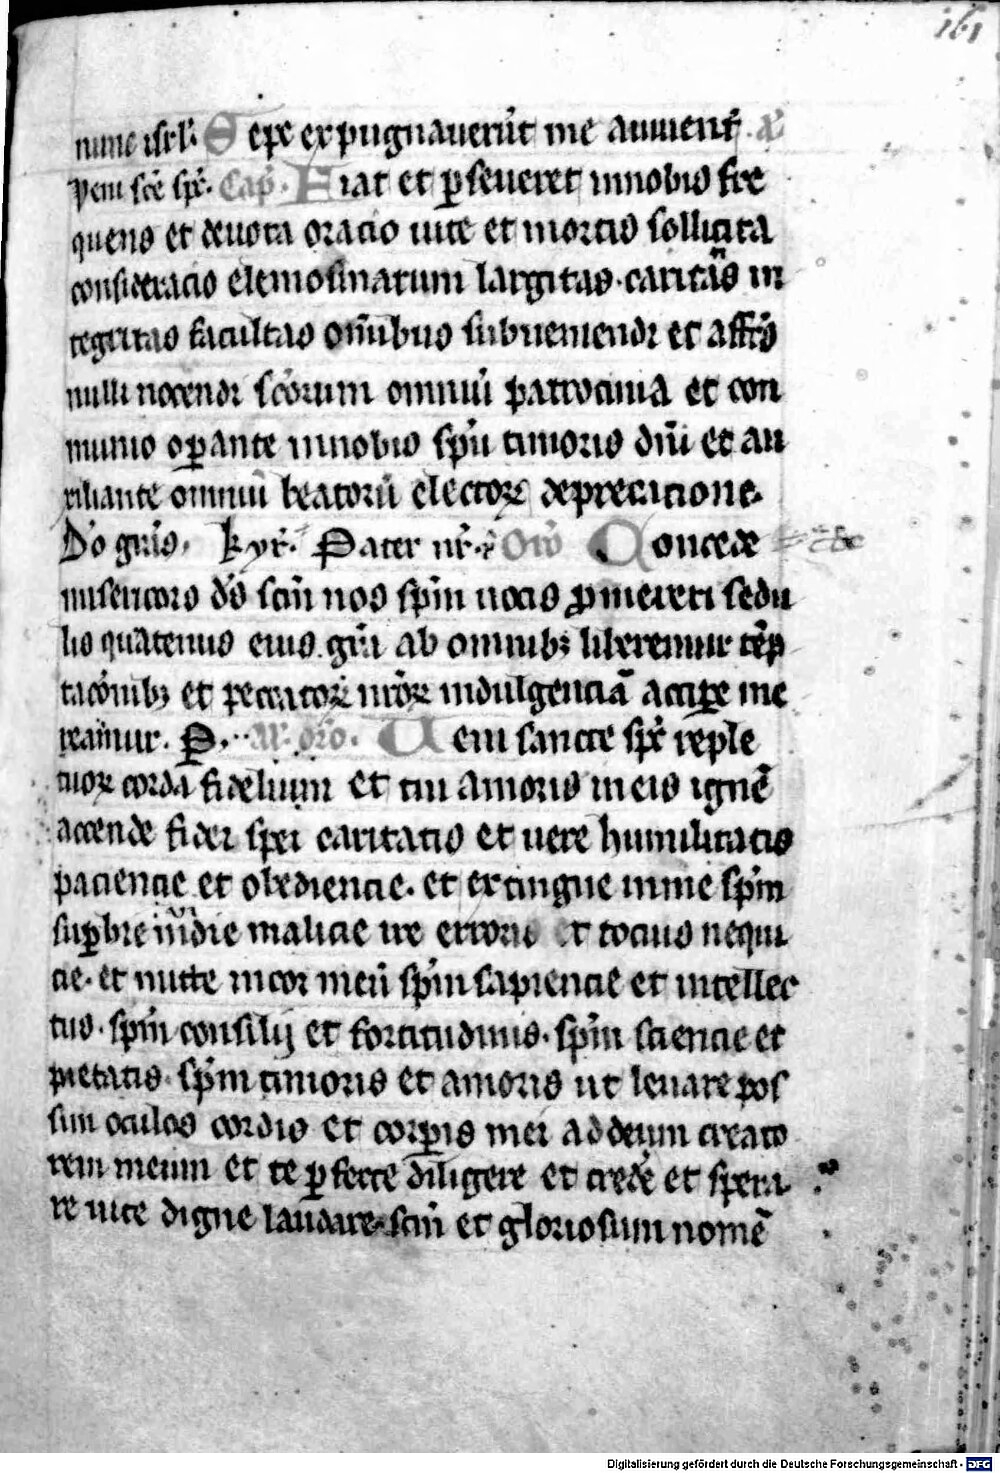 161
nunc isrl'. Sepe expugnauerūt me a iuuent̄. a᷑
Veni sc̄e sp̄c. Cap̄. Fiat et ꝑseueret innobis fre
quens et deuota oracio uite et mortis sollicita
consideracio elemosinarum largitas. caritātis in
tegritas facultas om̄ibus subueniendi et affc̄us
nulli nocendi sc̄orum omniū patrocinia et con
munio oꝑante innobis sp̄u timoris dn̄i et au
xiliante omniū beatorū electoꝝ deprecacione.
Do grās. kyr̄. Pater nr̄. Orō Concede
misericors ds̄ sc̄m nos sp̄m uocis ꝓmereri sedu
lis quatenus eius gr̄a ab omnibꝫ liberemur tēp
tacōnibꝫ et peccatoꝝ nr̄oꝝ indulgenciā acciꝑe me
reamur. P. Al'. orō. Veni sancte sp̄c reple
tuoꝝ corda fidelium et tui amoris ineis ignē
accende fidei spei caritatis et uere humilitatis
paciencie et obediencie. et extingue inme sp̄m
suꝑbie inuidie malicie ire erroris et tocius nequi
cie. et mitte incor meū sp̄m sapiencie et intellec
tus. sp̄m consilij et fortitudinis. sp̄m sciencie et
pietatis. sp̄m timoris et amoris ut leuare pos
sim oculos cordis et corꝑis mei ad deum creato
rem meum et te ꝑfecte diligere et credē et spera
re rite digne laudare. sc̄m et gloriosum nomē
Digitalisierung gefördert durch die Deutsche Forschungsgemeinschaft - DFG